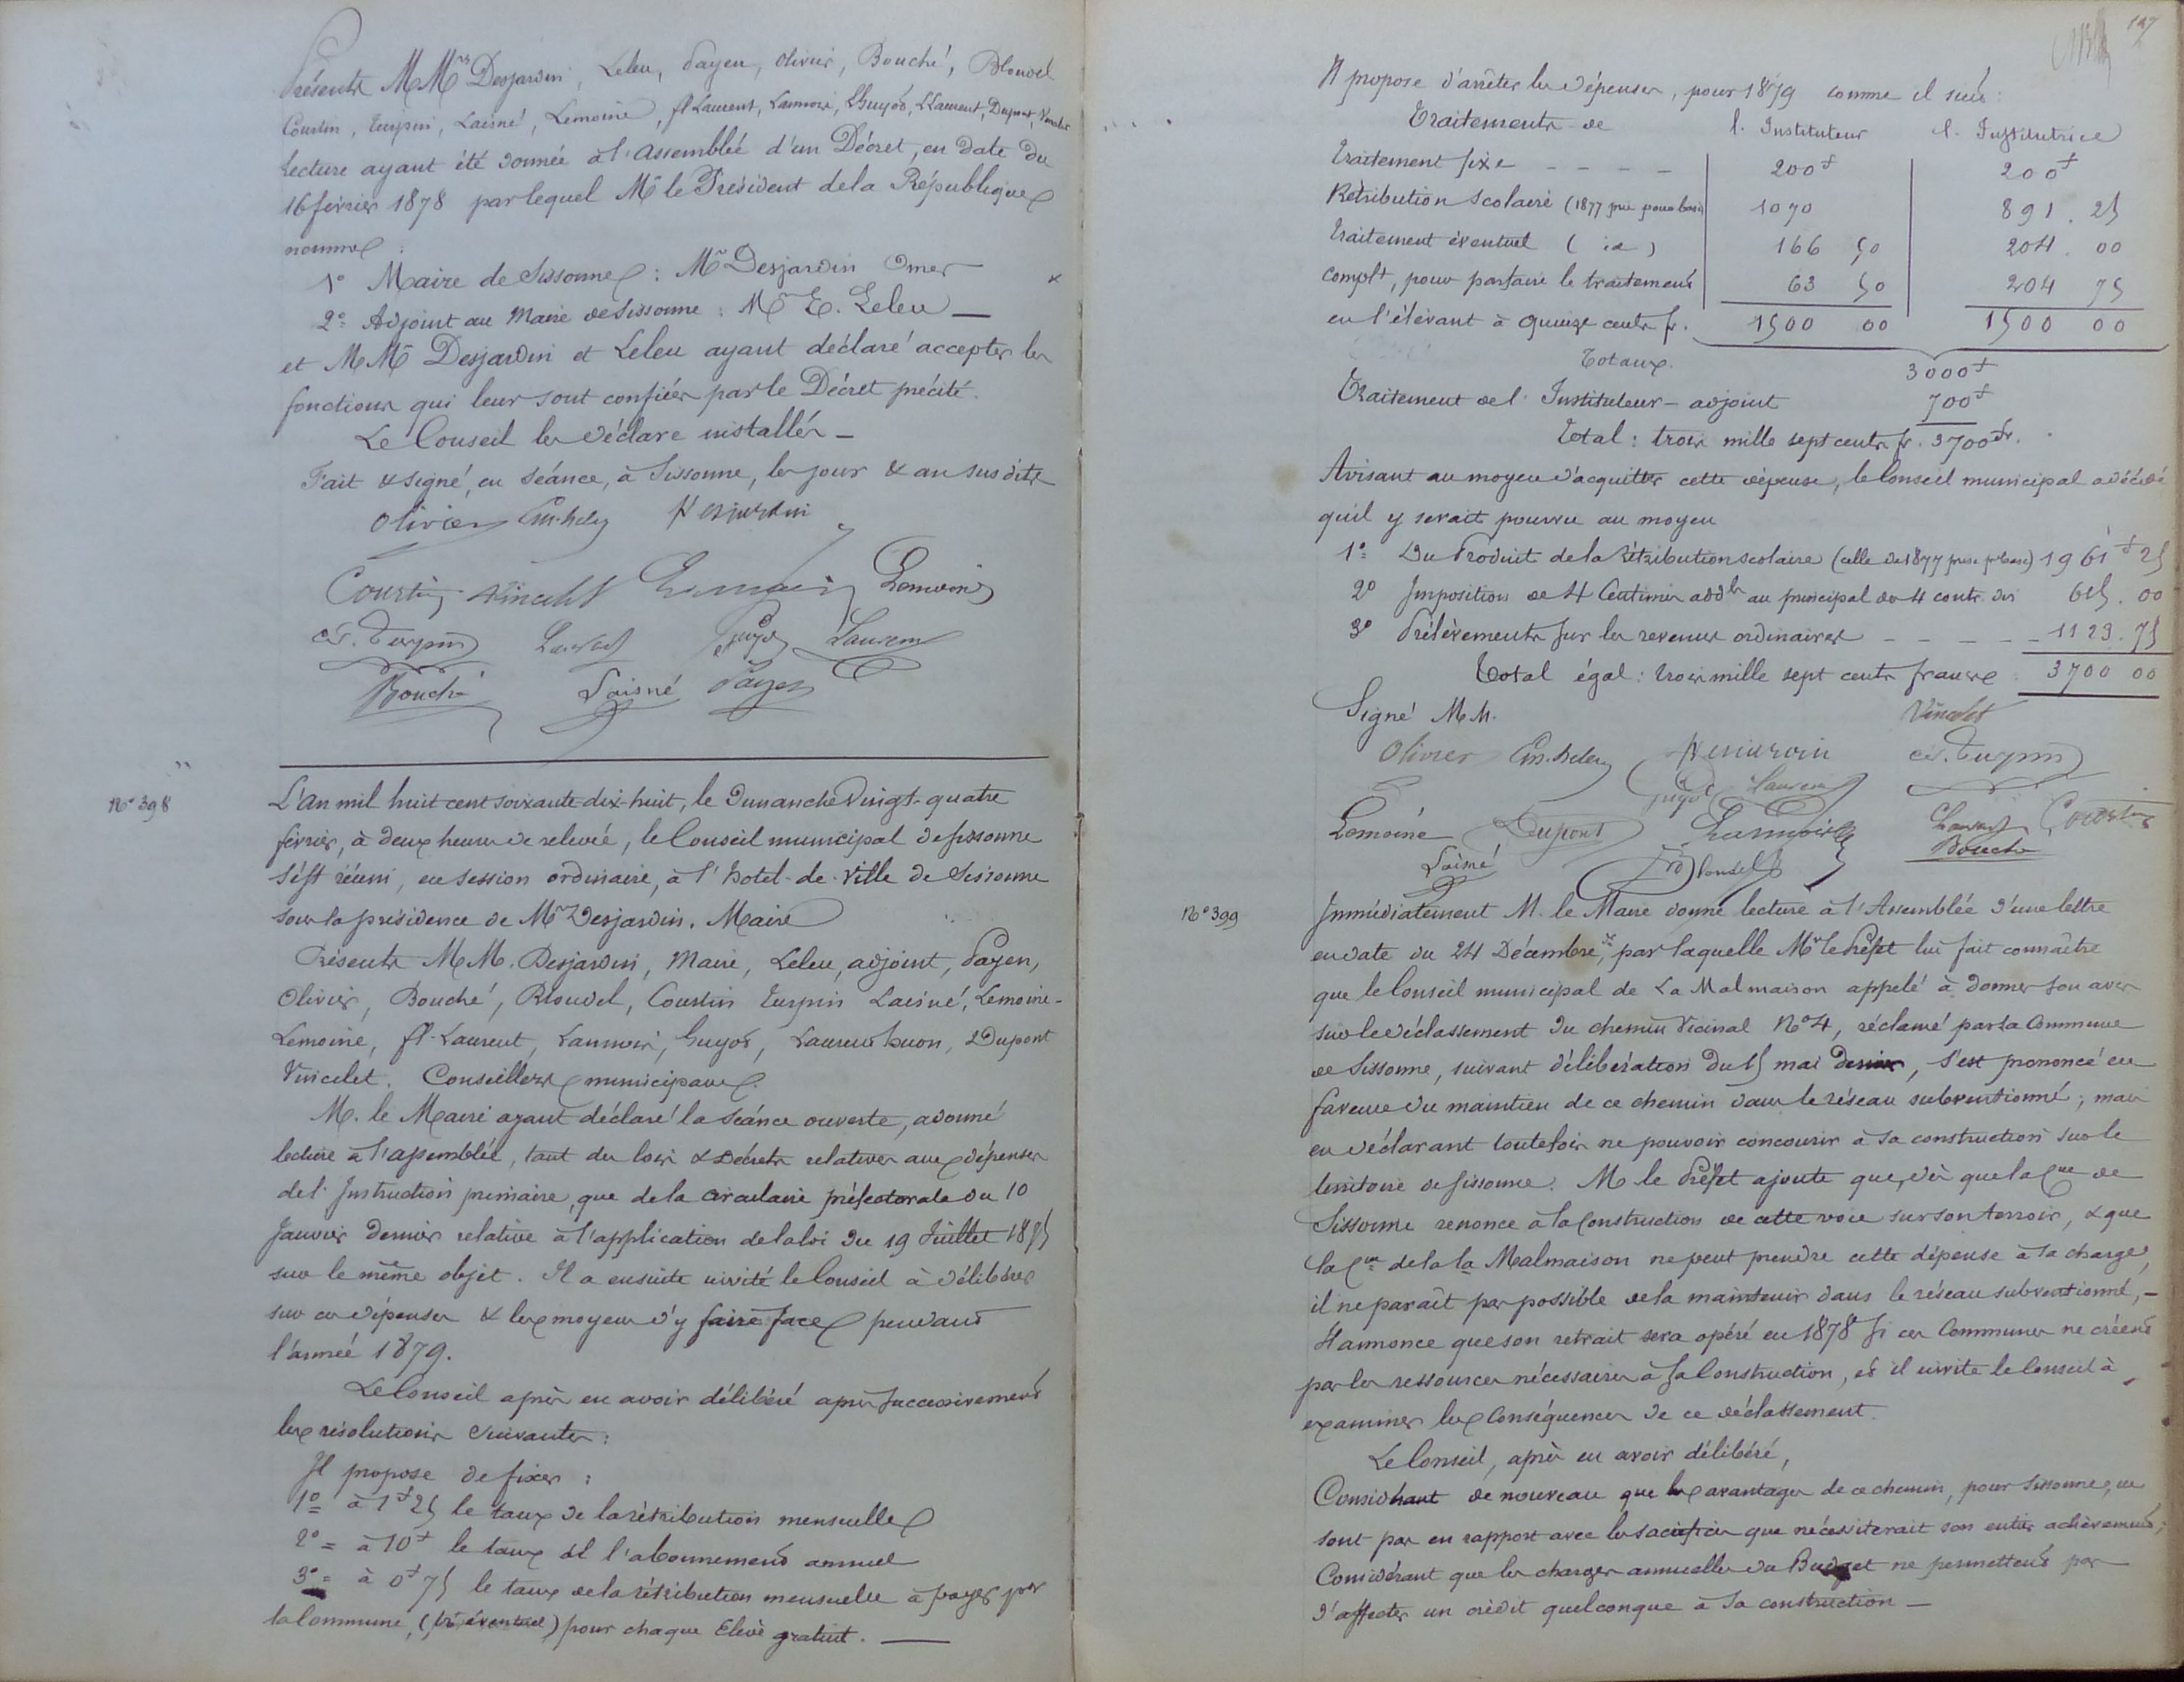 Présents M.Mrs Desjardin, Leleu, Payen, Olivier, Bouché, Blondel
Courtin, Turpin, Laisné, Lemoine, fl Laurent, Lannois, Guyot, L Laurent, Dupont, Vincelet
Lecture ayant été donnée à l'assemblée d'un Décret, en date du
16 février 1878 par lequel Mr le Président de la République
nomme :
1° Maire de Sissonne : Mr Desjardin Omer
2° Adjoint au Maire de Sissonne : Mr E. Leleu —
et M.Mr Desjardin et Leleu ayant déclaré accepter les
fonctions qui leur sont confiées par le Décret précité.
Le Conseil les déclare installés —
Fait & signé, en séance, à Sissonne, les jour & an susdits
Olivier Em. Leleu Desjardin
Courtin Vincelet Lannois Lemoine
cés. Turpin Laurent Guyot Laurent
Bouché Laisné Payen
N° 398
L'an mil huit cent soixante-dix-huit, le Dimanche Vingt-quatre
février, à deux heures de relevée, le Conseil municipal de Sissonne
s'est réuni, en session ordinaire, à l'hotel-de-Ville de Sissonne
sous la présidence de Mr Desjardin. Maire
Présents M.M. Desjardin, Maire, Leleu, adjoint, Payen,
Olivier, Bouché, Blondel, Courtin Turpin Laisné, Lemoine-
Lemoine, fl. Laurent, Lannois, Guyot, Laurent huon, Dupont
Vincelet. Conseillers municipaux.
M. le Maire ayant déclaré la séance ouverte, a donné
lecture à l'assemblée, tant des lois & Décrets relatives aux dépenses
de l'Instruction primaire, que de la circulaire préfectorale du 10
Janvier dernier relative à l'application de la loi du 19 Juillet 1875
sur le même objet. Il a ensuite invité le Conseil à délibérer
sur ces dépenses & les moyens d'y faire face pendant
l'année 1879.
Le Conseil après en avoir délibéré a pris successivement
les résolutions suivantes :
Il propose de fixer :
1° = à 1f 25 le taux de la rétribution mensuelle
2° = à 10f le taux de l'abonnement annuel
3° = à 0f 75 le taux de la rétribution mensuelle à payer par
la Commune, (tr éventuel) pour chaque Elève gratuit. —
197
Il propose d'arrêter les dépenses, pour 1879 comme il suit :
Traitements de l'Instituteur l'Institutrice
Traitement fixe - - - - 200f 200f
Rétribution Scolaire (1877 prise pour base) 1070 891. 25
Traitement éventuel ( id ) 166 50 204. 00
Complt, pour parfaire le traitement 63 50 204 75
en l'élevant à quinze cents fr. 1500 00 1500 00
Totaux. 3000f
Traitement de l'Instituteur-adjoint 700f
Total : trois mille sept cents fr. 3700fr.
Avisant au moyen d'acquitter cette dépense, le Conseil municipal a décidé
qu'il y serait pourvu au moyen
1° Du Produit de la Rétribution scolaire (celle de 1877 prise pr base) 1961f 25
2° Imposition de 4 Centimes addls au principal des 4 contr. dir 615. 00
3° Prélèvements sur les revenus ordinaires - - - - - 1123. 75
Total égal : trois mille sept cents francs : 3700 00
Signé M.M. Vincelet
Olivier Em. Leleu Desjardin cés. Turpin
Guyot Laurent
Lemoine Dupont Lannois Laurent Courtin
Laisné Blondel Bouché
N° 399
Immédiatement M. le Maire donne lecture à l'Assemblée d'une lettre
en date du 24 Décembre dr, par laquelle Mr le Préfet lui fait connaître
que le Conseil municipal de La Malmaison appelé à donner son avis
sur le déclassement du chemin vicinal N° 4, réclamé par la Commune
de Sissonne, suivant délibération du 15 mai dernier, s'est prononcé en
faveur du maintien de ce chemin dans le réseau subventionné ; mais
en déclarant toutefois ne pouvoir concourir à sa construction sur le
territoire de Sissonne. M le Préfet ajoute que, dès que la Cne de
Sissonne renonce à la Construction de cette voie sur son terroir, & que
la Cne de la la Malmaison ne peut prendre cette dépense à sa charge,
il ne paraît pas possible de la maintenir dans le réseau subventionné, —
Il annonce que son retrait sera opéré en 1878 si ces Communes ne créent
pas les ressources nécessaires à sa Construction, et il invite le Conseil à
examiner les Conséquences de ce déclassement.
Le Conseil, après en avoir délibéré,
Considérant de nouveau que les avantages de ce chemin, pour Sissonne, ne
sont pas en rapport avec les sacrifices que nécessiterait son entier achèvement ;
Considérant que les charges annuelles du Budget ne permettent pas
d'affecter un crédit quelconque à sa construction —